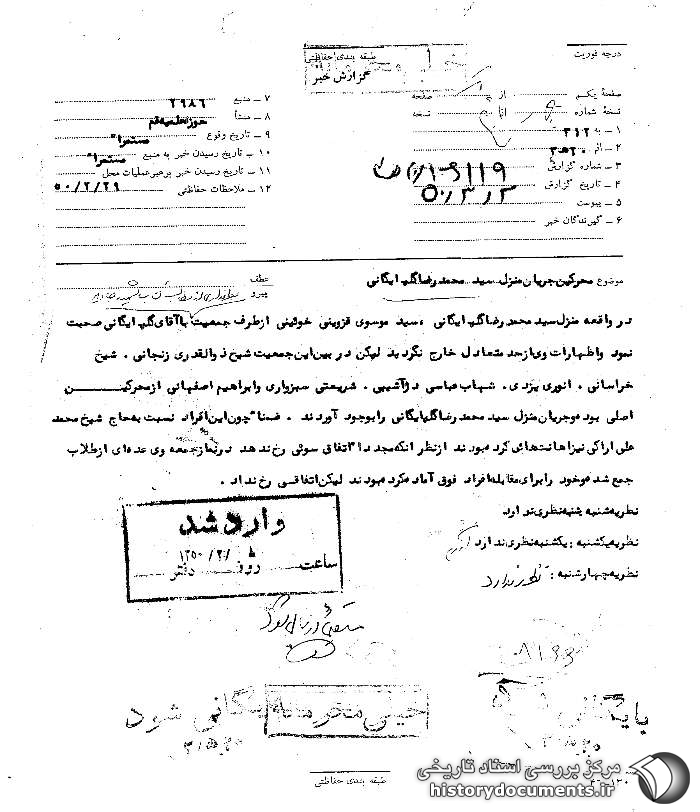 درجه فوریت
طبقه بندی حفاظتی
گزارش خبر
صفحهٔ یکم از صفحه
نسخهٔ شماره از نسخه
۱ ـ به ۳۱۲
۲ ـ از
۳ ـ شماره گزارش
۴ ـ تاریخ گزارش ۵۰/۳/۳
۵ ـ پیوست
۶ ـ گیرندگان خبر
۷ ـ منبع ۲۹۸۶
۸ ـ منشأ حوزه علمیه قم
۹ ـ تاریخ وقوع مستمرا"
۱۰ ـ تاریخ رسیدن خبر به منبع مستمرا"
۱۱ ـ تاریخ رسیدن خبر برهبر عملیات محل
۱۲ ـ ملاحظات حفاظتی ۵۰/۲/۲۹
موضوع محرکین جریان منزل سید محمدرضا گلپایگانی
عطف
پیرو
در واقعه منزل سید محمدرضا گلپایگانی ، سید موسوی قزوینی خوئینی از طرف جمعیت با آقای گلپایگانی صحبت
نمود و اظهارات وی از حد متعادل خارج نگردید لیکن در بین این جمعیت شیخ ذوالقدری زنجانی . شیخ
خراسانی . انوری یزدی . شهاب عباسی دزآشیبی . شریعتی سبزواری و ابراهیم اصفهانی از محرکین
اصلی بوده و جریان منزل سید محمدرضا گلپایگانی را بوجود آوردند . ضمنا" چون این افراد نسبت به حاج شیخ محمد
علی اراکی نیز اهانتهای کرده بودند از نظر اینکه مجددا" اتفاق سوئی رخ ندهد در نماز جمعه وی عده‌ای از طلاب
جمع شده و خود را برای مقابله افراد فوق آماده کرده بودند لیکن اتفاقی رخ نداد .
نظریه شنبه شنبه نظری ندارد
نظریه یکشنبه : یکشنبه نظری ندارد
نظریه چهارشنبه : نظری ندارد
وارد شد
ساعت روز ۱۳۵۰/۳/
دفتر
بایگانی شود
خیلی محرمانه
بایگانی شود
طبقه بندی حفاظتی
مرکز بررسی اسناد تاریخی
historydocuments.ir